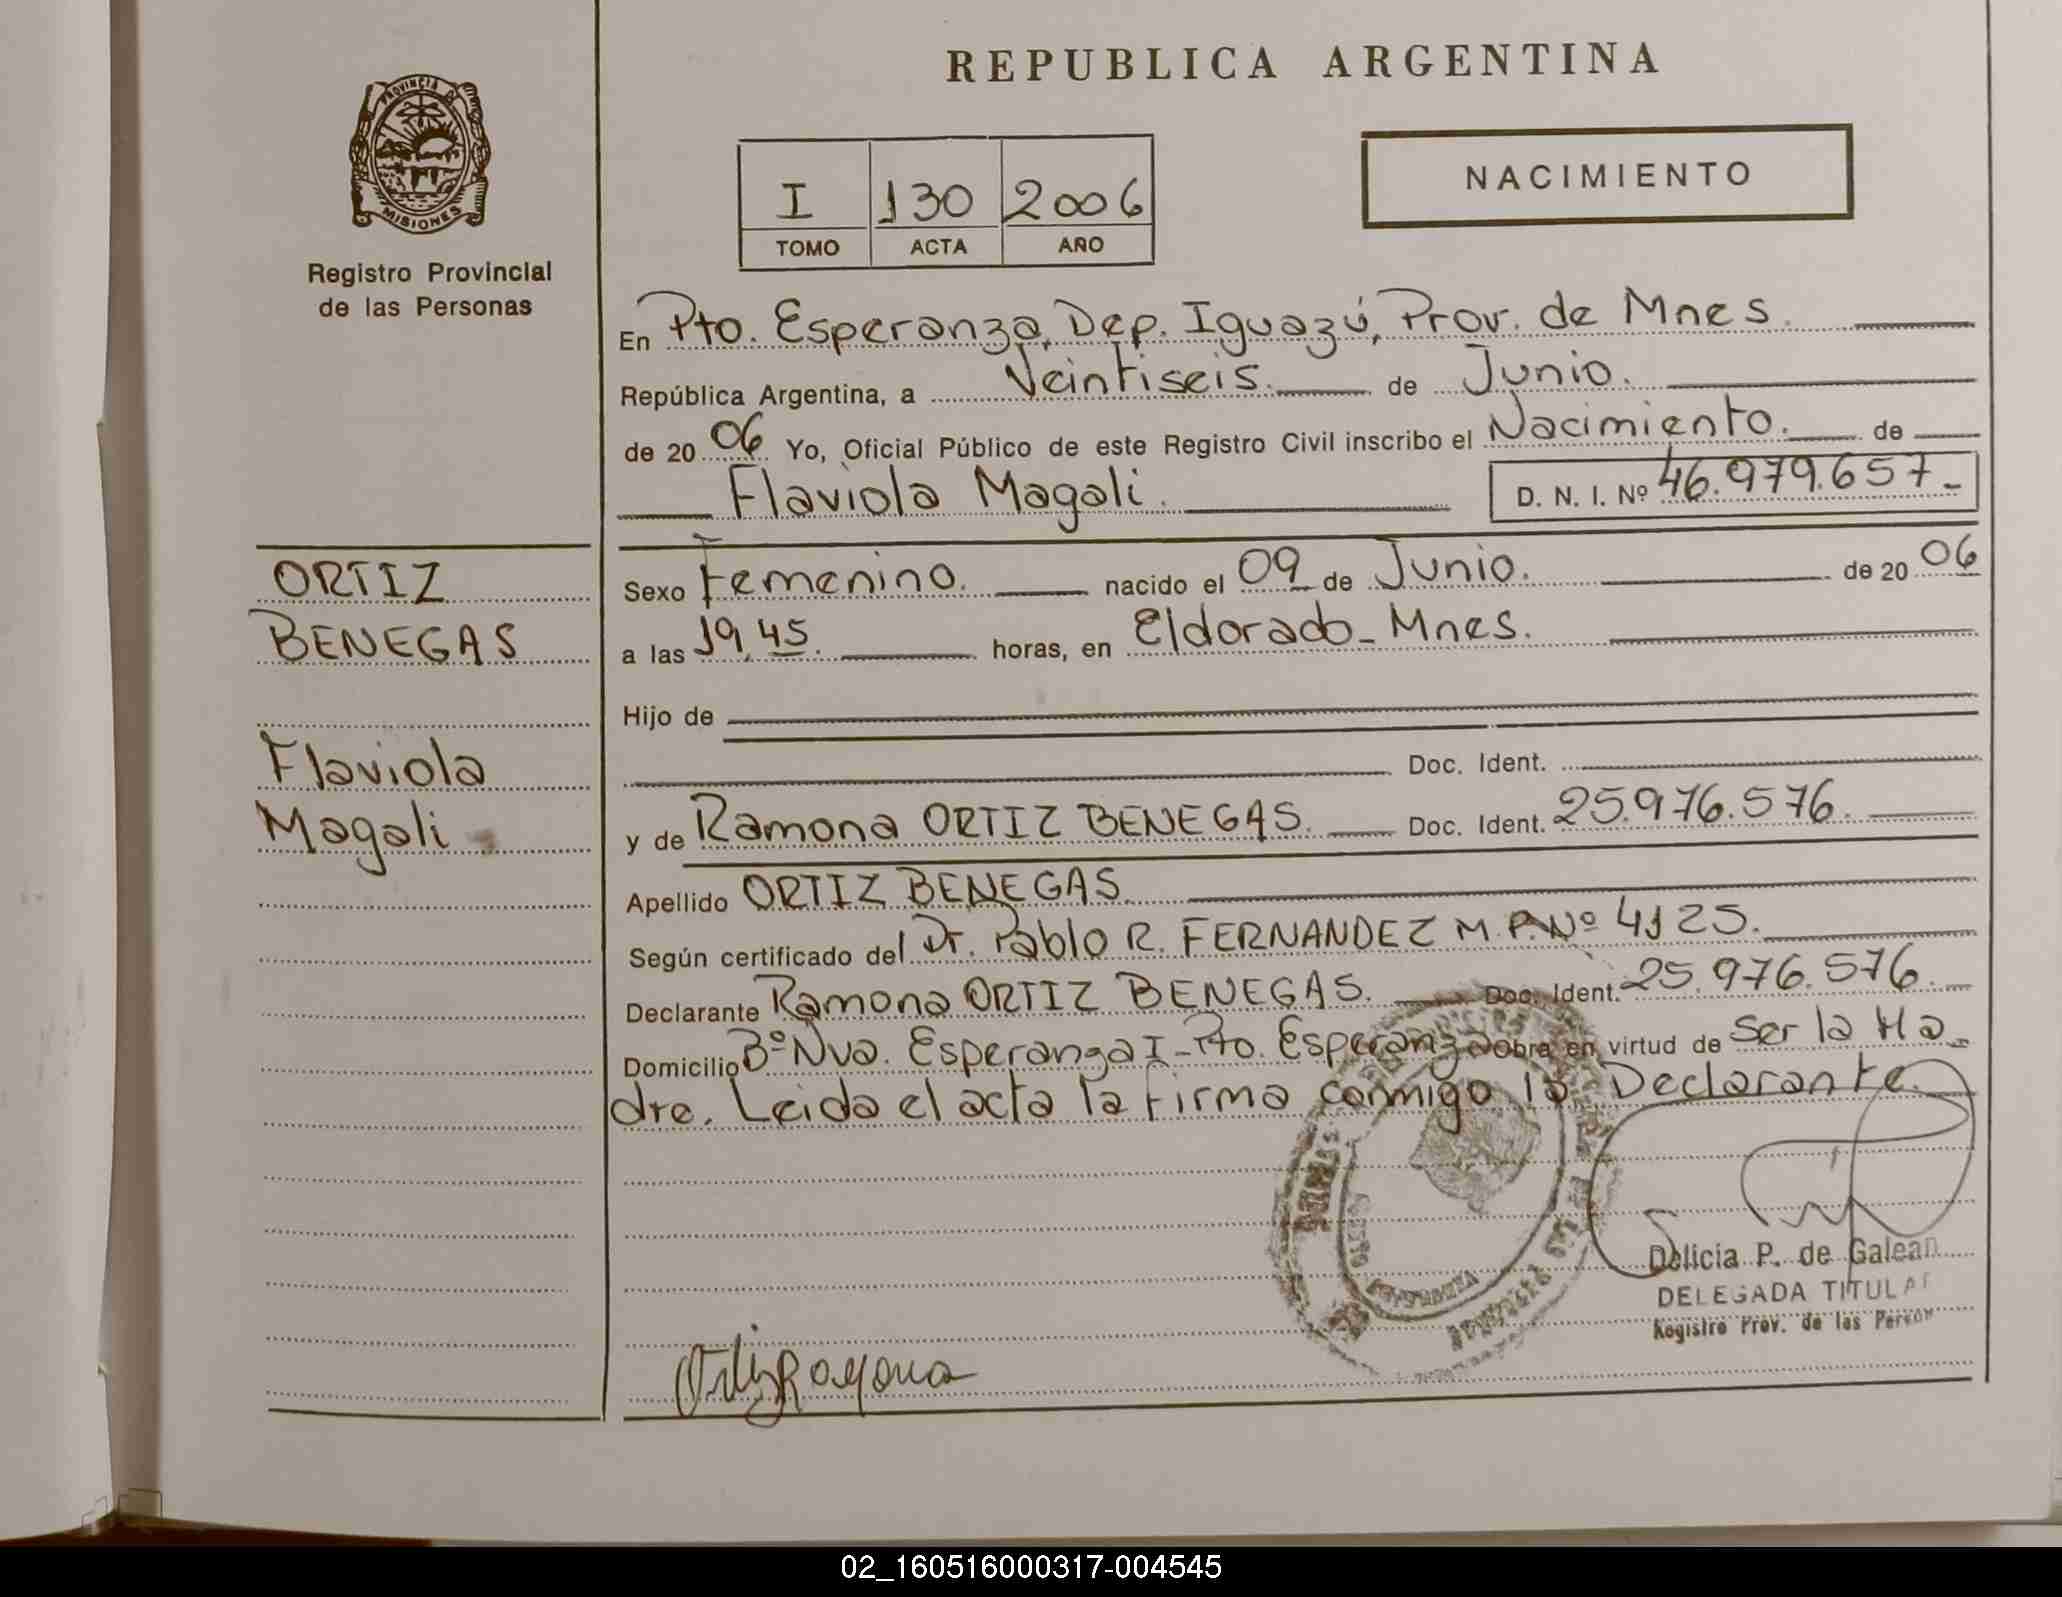 REPUBLICA ARGENTINA
PROVINCIA DE
MISIONES
Registro Provincial
de las Personas
I 130 2006
TOMO ACTA AÑO
NACIMIENTO
En Pto. Esperanza, Dep. Iguazú, Prov. de Mnes.
República Argentina, a Veintiseis. de Junio.
de 20 06 Yo, Oficial Público de este Registro Civil inscribo el Nacimiento. de
Flaviola Magali. D. N. I. Nº 46.979.657-
ORTIZ
BENEGAS
Flaviola
Magali
Sexo Femenino. nacido el 09 de Junio. de 20 06
a las 19,45. horas, en Eldorado - Mnes.
Hijo de
Doc. Ident.
y de Ramona ORTIZ BENEGAS. Doc. Ident. 25.976.576.
Apellido ORTIZ BENEGAS.
Según certificado del Dr. Pablo R. FERNANDEZ M.P.Nº 4125.
Declarante Ramona ORTIZ BENEGAS. Doc. Ident. 25.976.576.
Domicilio Bº Nva. Esperanza I - Pto. Esperanza obra en virtud de ser la Ma-
dre. Leida el acta la firma conmigo la Declarante.
Delicia P. de Galean
DELEGADA TITULAR
Registro Prov. de las Person
02_160516000317-004545